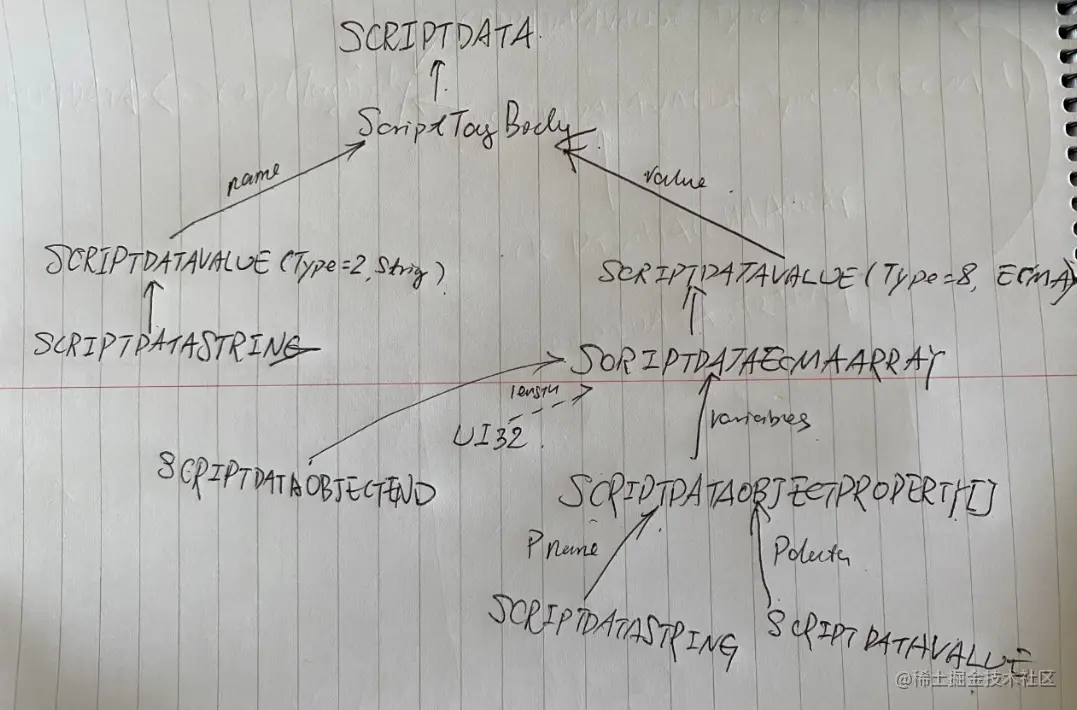 SCRIPTDATA
ScriptTagBody
name
value
SCRIPTDATAVALUE (Type=2, Strig)
SCRIPTDATAVALUE (Type=8, ECMA)
SCRIPTDATASTRING
SCRIPTDATAECMAARRAY
length
UI32
variables
SCRIPTDATAOBJECTEND
SCRIPTDATAOBJECTPROPERTY[]
Pname
Pdata
SCRIPTDATASTRING
SCRIPTDATAVALUE
@稀土掘金技术社区